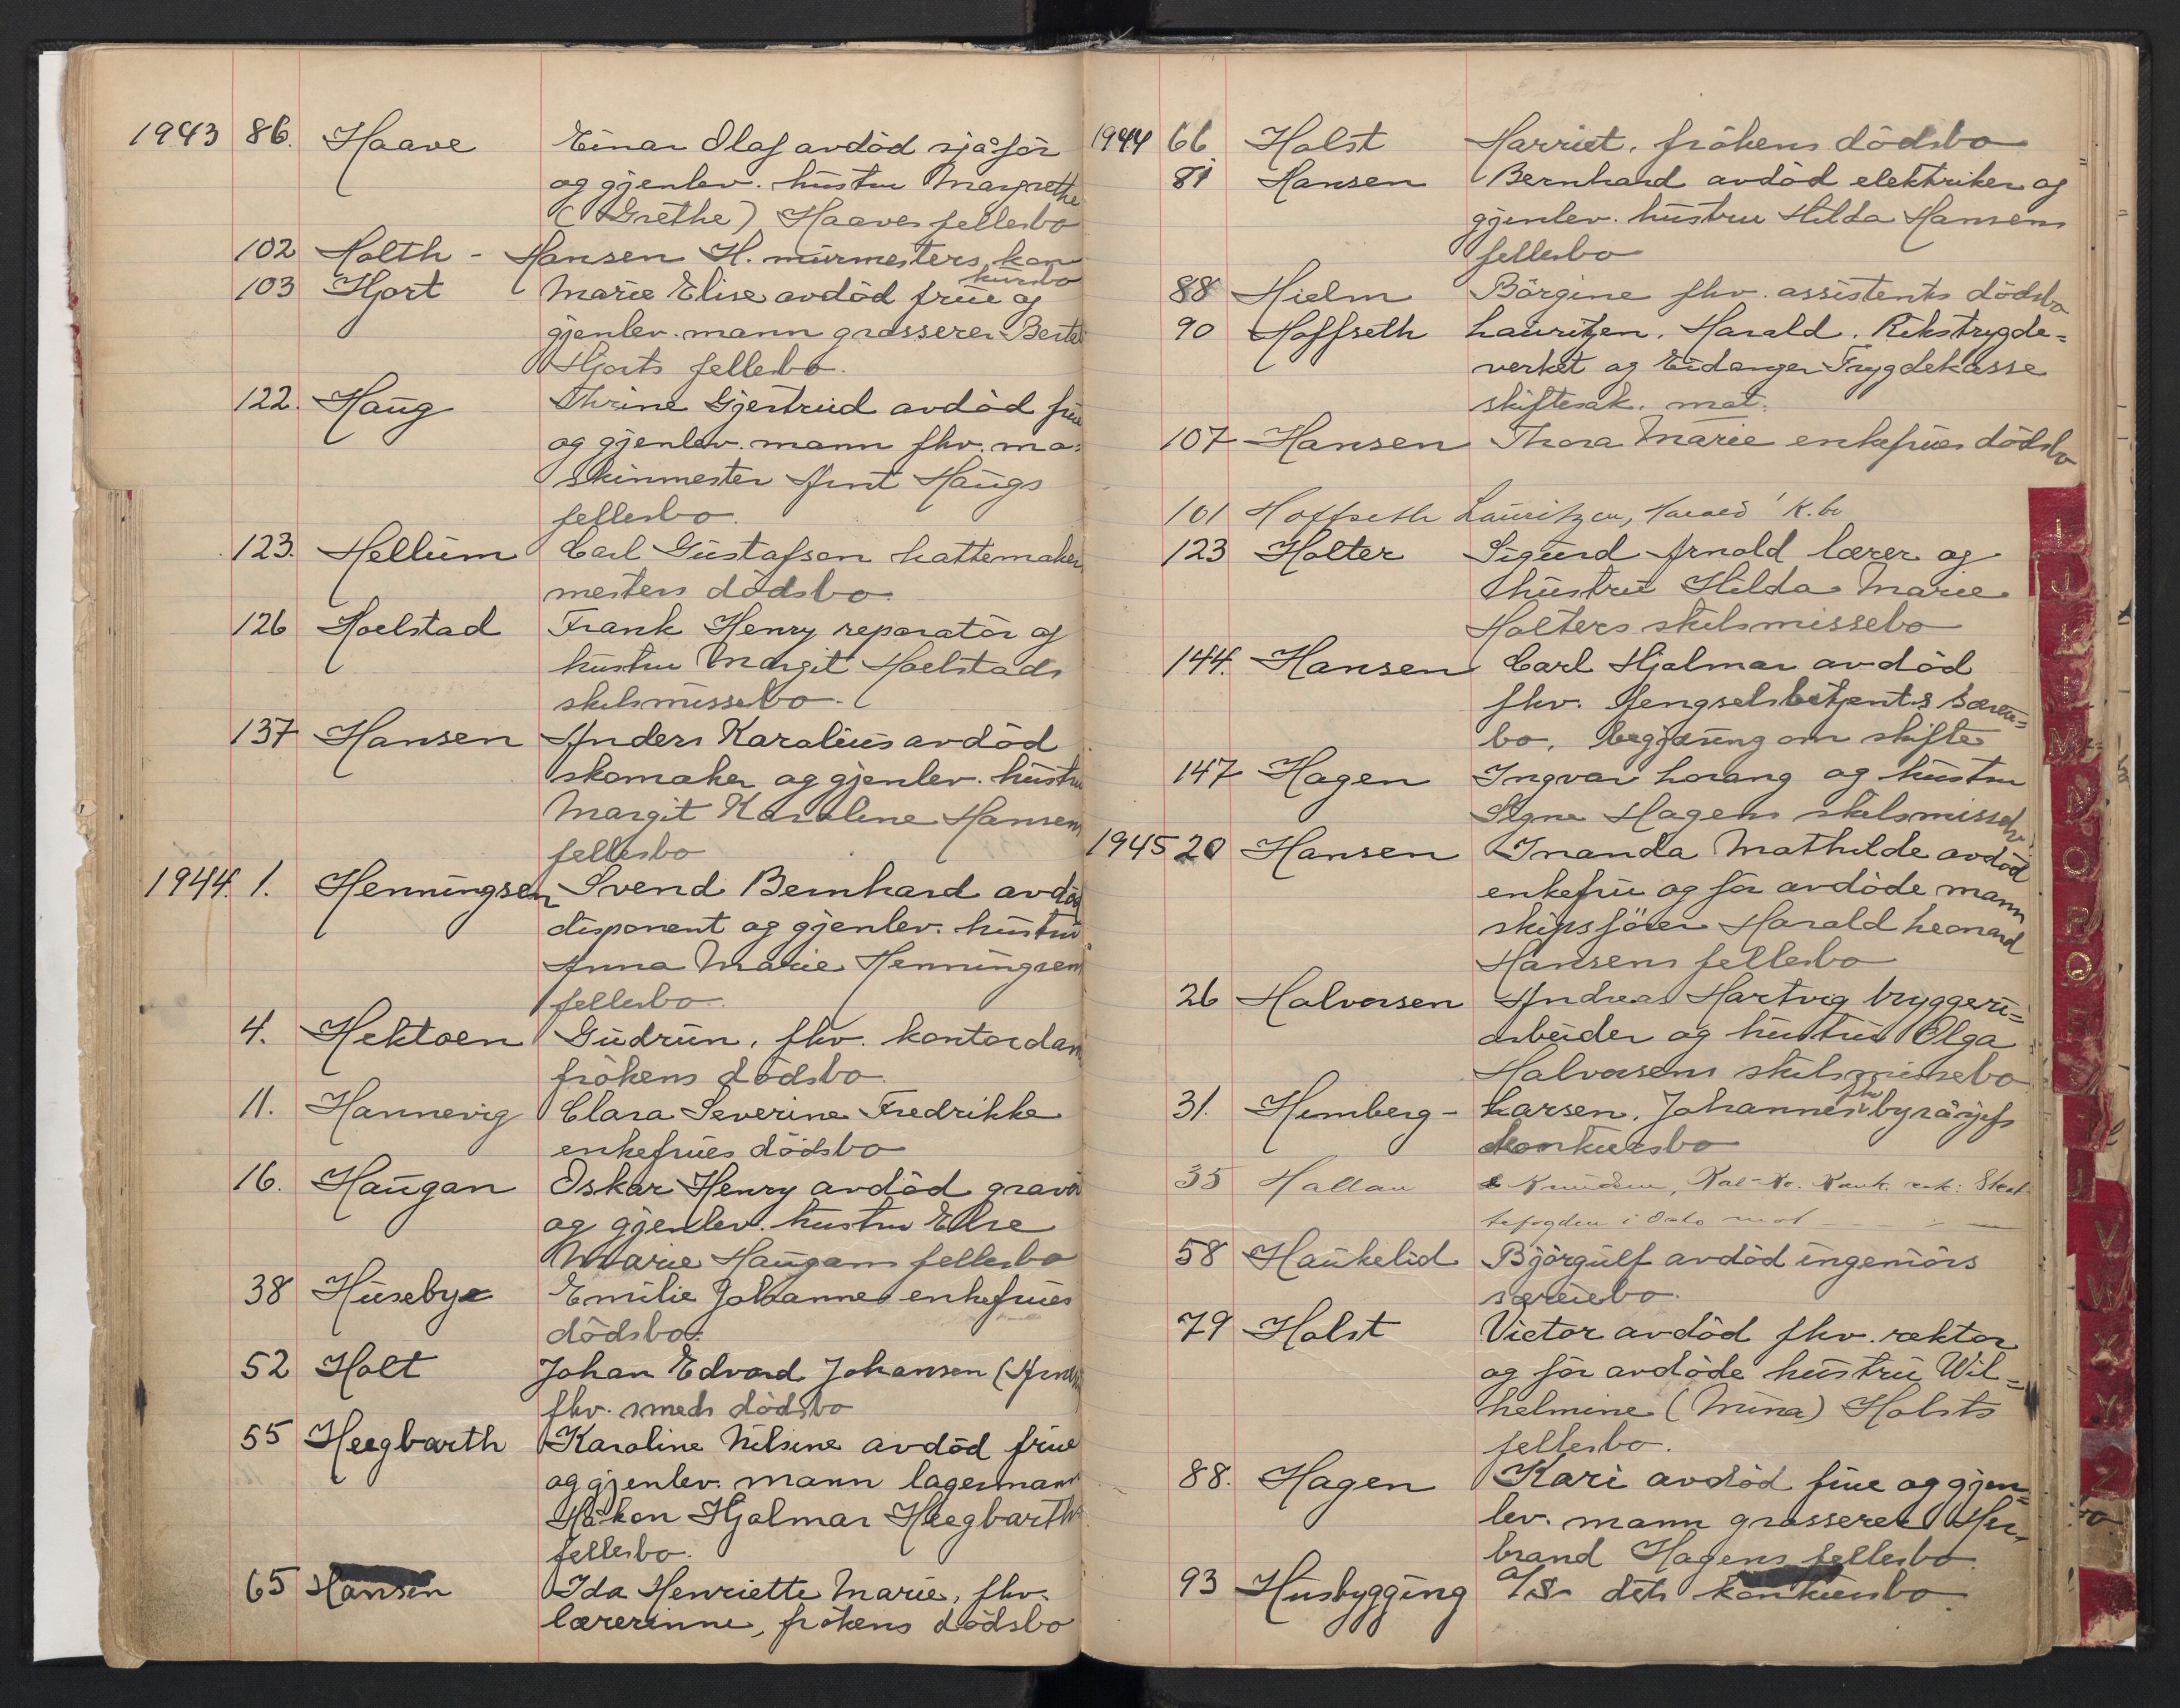 1943 86. Haave Einar Olaf avdöd sjåför
og gjenlev. hustru Margrethe
(Grethe) Haaves fellesbo
102 Holth - Hansen H. murmesters kon
kursbo
103 Hjort Marie Elise avdöd frue og
gjenlev. mann grosserer Bertel
Hjorts fellesbo.
122. Haug Thrine Gjertrud avdöd frue
og gjenlev. mann fhv. ma=
skinmester Arnt Haugs
fellesbo.
123. Hellum Carl Gustafson hattemaker
mesters dödsbo.
126 Hoelstad Frank Henry reparatör og
hustru Margit Hoelstads
skilsmissebo.
137 Hansen Anders Karolius avdöd
skomaker og gjenlev. hustru
Margit Karoline Hansens
fellesbo
1944. 1. Henningsen Svend Bernhard avdöd
disponent og gjenlev. hustru
Anna Marie Henningsens
fellesbo.
4. Hektoen Gudrun, fhv. kontordame
frökens dödsbo.
11. Hannevig Clara Severine Fredrikke
enkefrues dödsbo
16. Haugan Oskar Henry avdöd gravör
og gjenlev. hustru Else
Marie Haugans fellesbo
38 Husebye Emilie Johanne enkefrues
dödsbo.
52 Holt Johan Edvard Johansen
fhv. smeds dödsbo
55 Heegbarth Karoline Nilsine avdöd frue
og gjenlev. mann lagermann
Håkon Hjalmar Heegbarths
fellesbo.
65 Hansen Ida Henriette Marie, fhv.
lærerinne, frökens dödsbo
1944 66 Holst Harriet, frökens dödsbo
81 Hansen Bernhard avdöd elektriker og
gjenlev. hustru Hilda Hansens
fellesbo
88 Hielm Börgine fhv. assistents dödsbo
90 Hoffseth Lauritzen, Harald. Rikstrygde=
verket og Eidanger Trygdekasse
skiftesak. mot.
107 Hansen Thora Marie enkefrues dödsbo
101 Hoffseth Lauritzen, Harald K.bo
123 Holter Sigurd Arnold lærer og
hustru Hilda Marie
Holters skilsmissebo
144. Hansen Carl Hjalmar avdöd
fhv. fengselsbetjents særeie=
bo, begjæring om skifte
147 Hagen Ingvar Lorang og hustru
Signe Hagens skilsmissebo
1945 20 Hansen Inanda Mathilde avdöd
enkefru og för avdöde mann
skipsförer Harald Leonard
Hansens fellesbo
26 Halvorsen Andreas Hartvig bryggeri=
arbeider og hustru Olga
Halvorsens skilsmissebo
31. Hemberg - Larsen, Johannes fhv. byråsjefs
konkursbo
35 Hallan & Knudsen, Kal-Ko. Konk. rek: Skat
tefogden i Oslo mot
58 Haukelid Björgulf avdöd ingeniörs
særeiebo.
79 Holst Victor avdöd fhv. rektor
og för avdöde hustru Wil=
helmine (Mina) Holsts
fellesbo.
88. Hagen Kari avdöd frue og gjen=
lev. mann grosserer Her=
brand Hagens fellesbo.
93 Husbygging A/S dets konkursbo.
I
J
K
L
M
N
O
P
Q
R
V
W
X
Y
Z